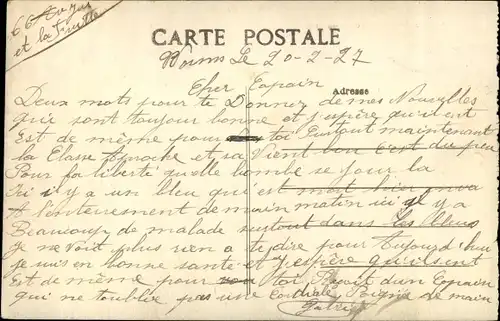 et la
CARTE POSTALE
Worms Le 20-2-27
Cher Copain
Adresse
Deux mots pour te Donner de mes Nouvelles
qui sont toujour bonne et j'espère qu'il ent
Est de même pour toi Surtout maintenant
la Classe Aproche et sa Vient bon c'est du peu
Pour la liberté quelle bombe se jour la
Ici il y a un bleu qui est mort hier on va
A l'enterrement demain matin ici il y a
Beaucoup de malade surtout dans les bleus
Je ne Voit plus rien a te dire pour Aujourd'hui
je suis en bonne santé et J'espère qu'ils ent
Est de même pour toi Reçoit d'un Copain
qui ne t'oublie pas une Cordiale Poigne de main